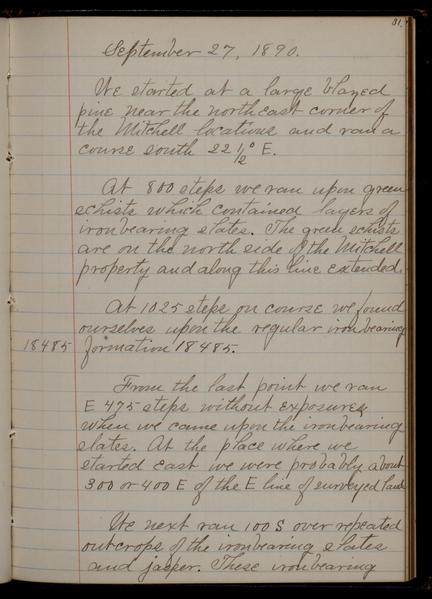 81.
September 27, 1890.
We started at a large blazed
pine near the northeast corner of
the Mitchell locations and ran a
course south 22 1/2° E.
At 800 steps we ran upon green
schists which contained layers of
ironbearing slates. The green schists
are on the north side of the Mitchell
property and along this line extended.
At 1025 steps on course we found
ourselves upon the regular ironbearing
18485 formation 18485.
From the last point we ran
E 475 steps without exposures
when we came upon the ironbearing
slates. At the place where we
started east we were probably about
300 or 400 E of the E line of surveyed land
We next ran 100 S over repeated
outcrops of the ironbearing slates
and jasper. These ironbearing